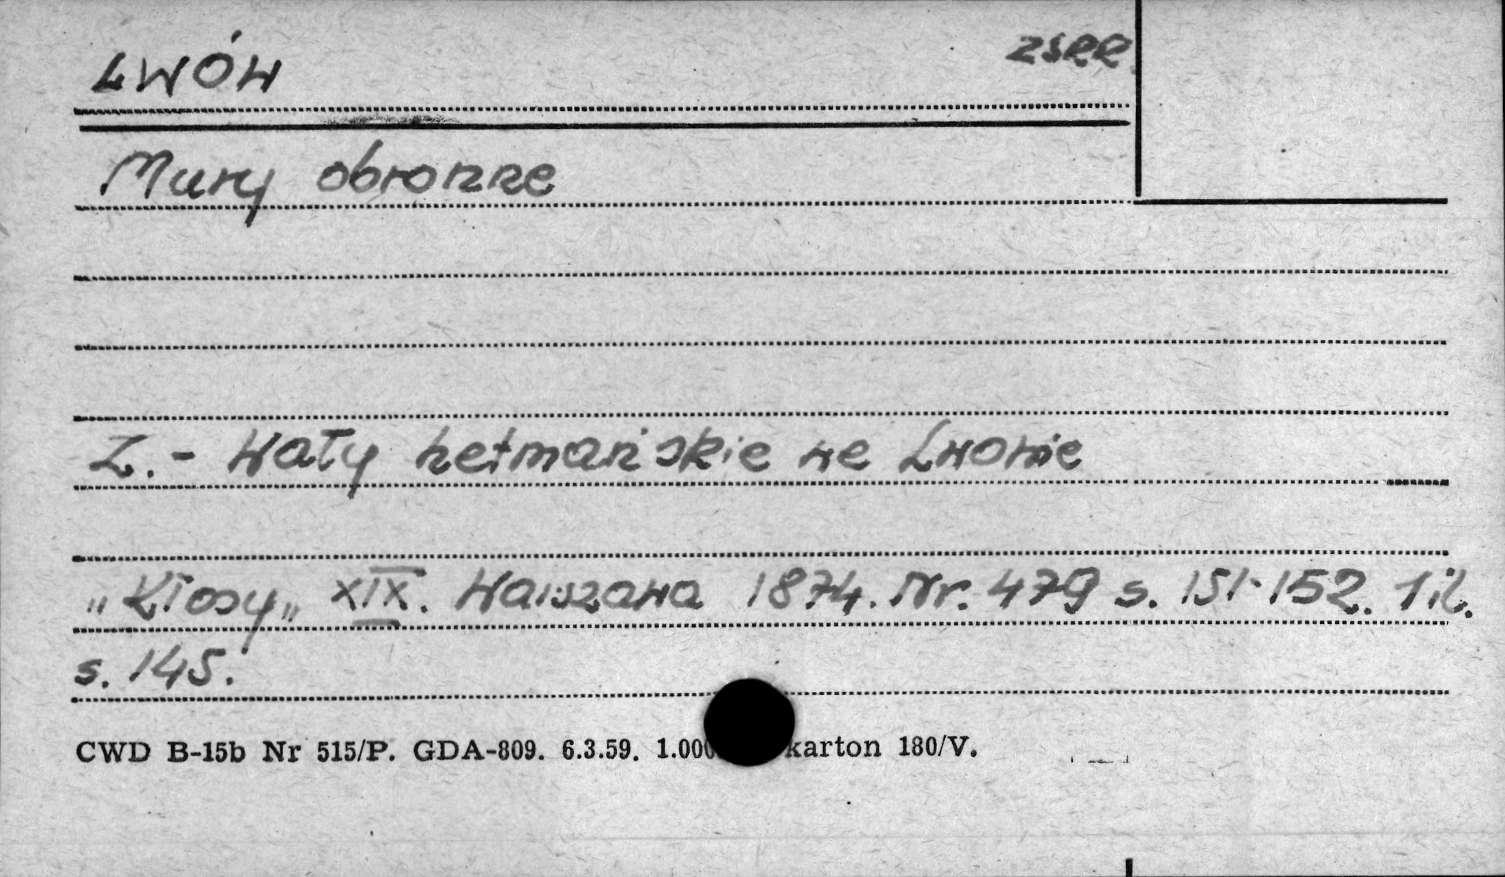 LWÓW ZSRR
Mury obronne
Z. - Wały hetmańskie we Lwowie
„Kłosy„ XIX. Warszawa 1874. Nr. 479 s. 151-152. 1 il.
s. 145.
CWD B-15b Nr 515/P. GDA-809. 6.3.59. 1.000 karton 180/V.